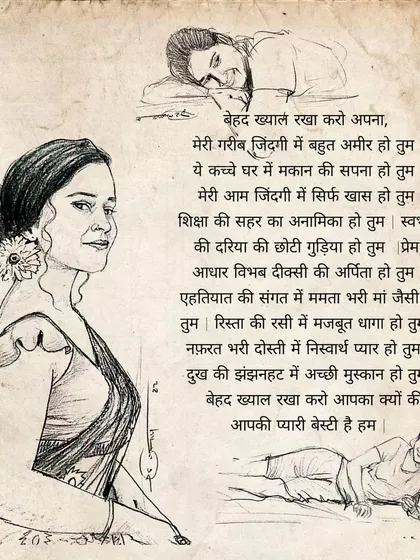 बेहद ख्याल रखा करो अपना,
मेरी गरीब ज़िंदगी में बहुत अमीर हो तुम
ये कच्चे घर में मकान की सपना हो तुम
मेरी आम जिंदगी में सिर्फ खास हो तुम
शिक्षा की सहर का अनामिका हो तुम |
की दरिया की छोटी गुड़िया हो तुम |प्रेम
आधार विभब दीक्सी की अर्पिता हो तुम
एहतियात की संगत में ममता भरी मां जैसी
तुम | रिस्ता की रसी में मजबूत धागा हो तुम
नफ़रत भरी दोस्ती में निस्वार्थ प्यार हो तुम
दुख की झंझनहट में अच्छी मुस्कान हो तुम
बेहद ख्याल रखा करो आपका क्यों की
आपकी प्यारी बेस्टी है हम |